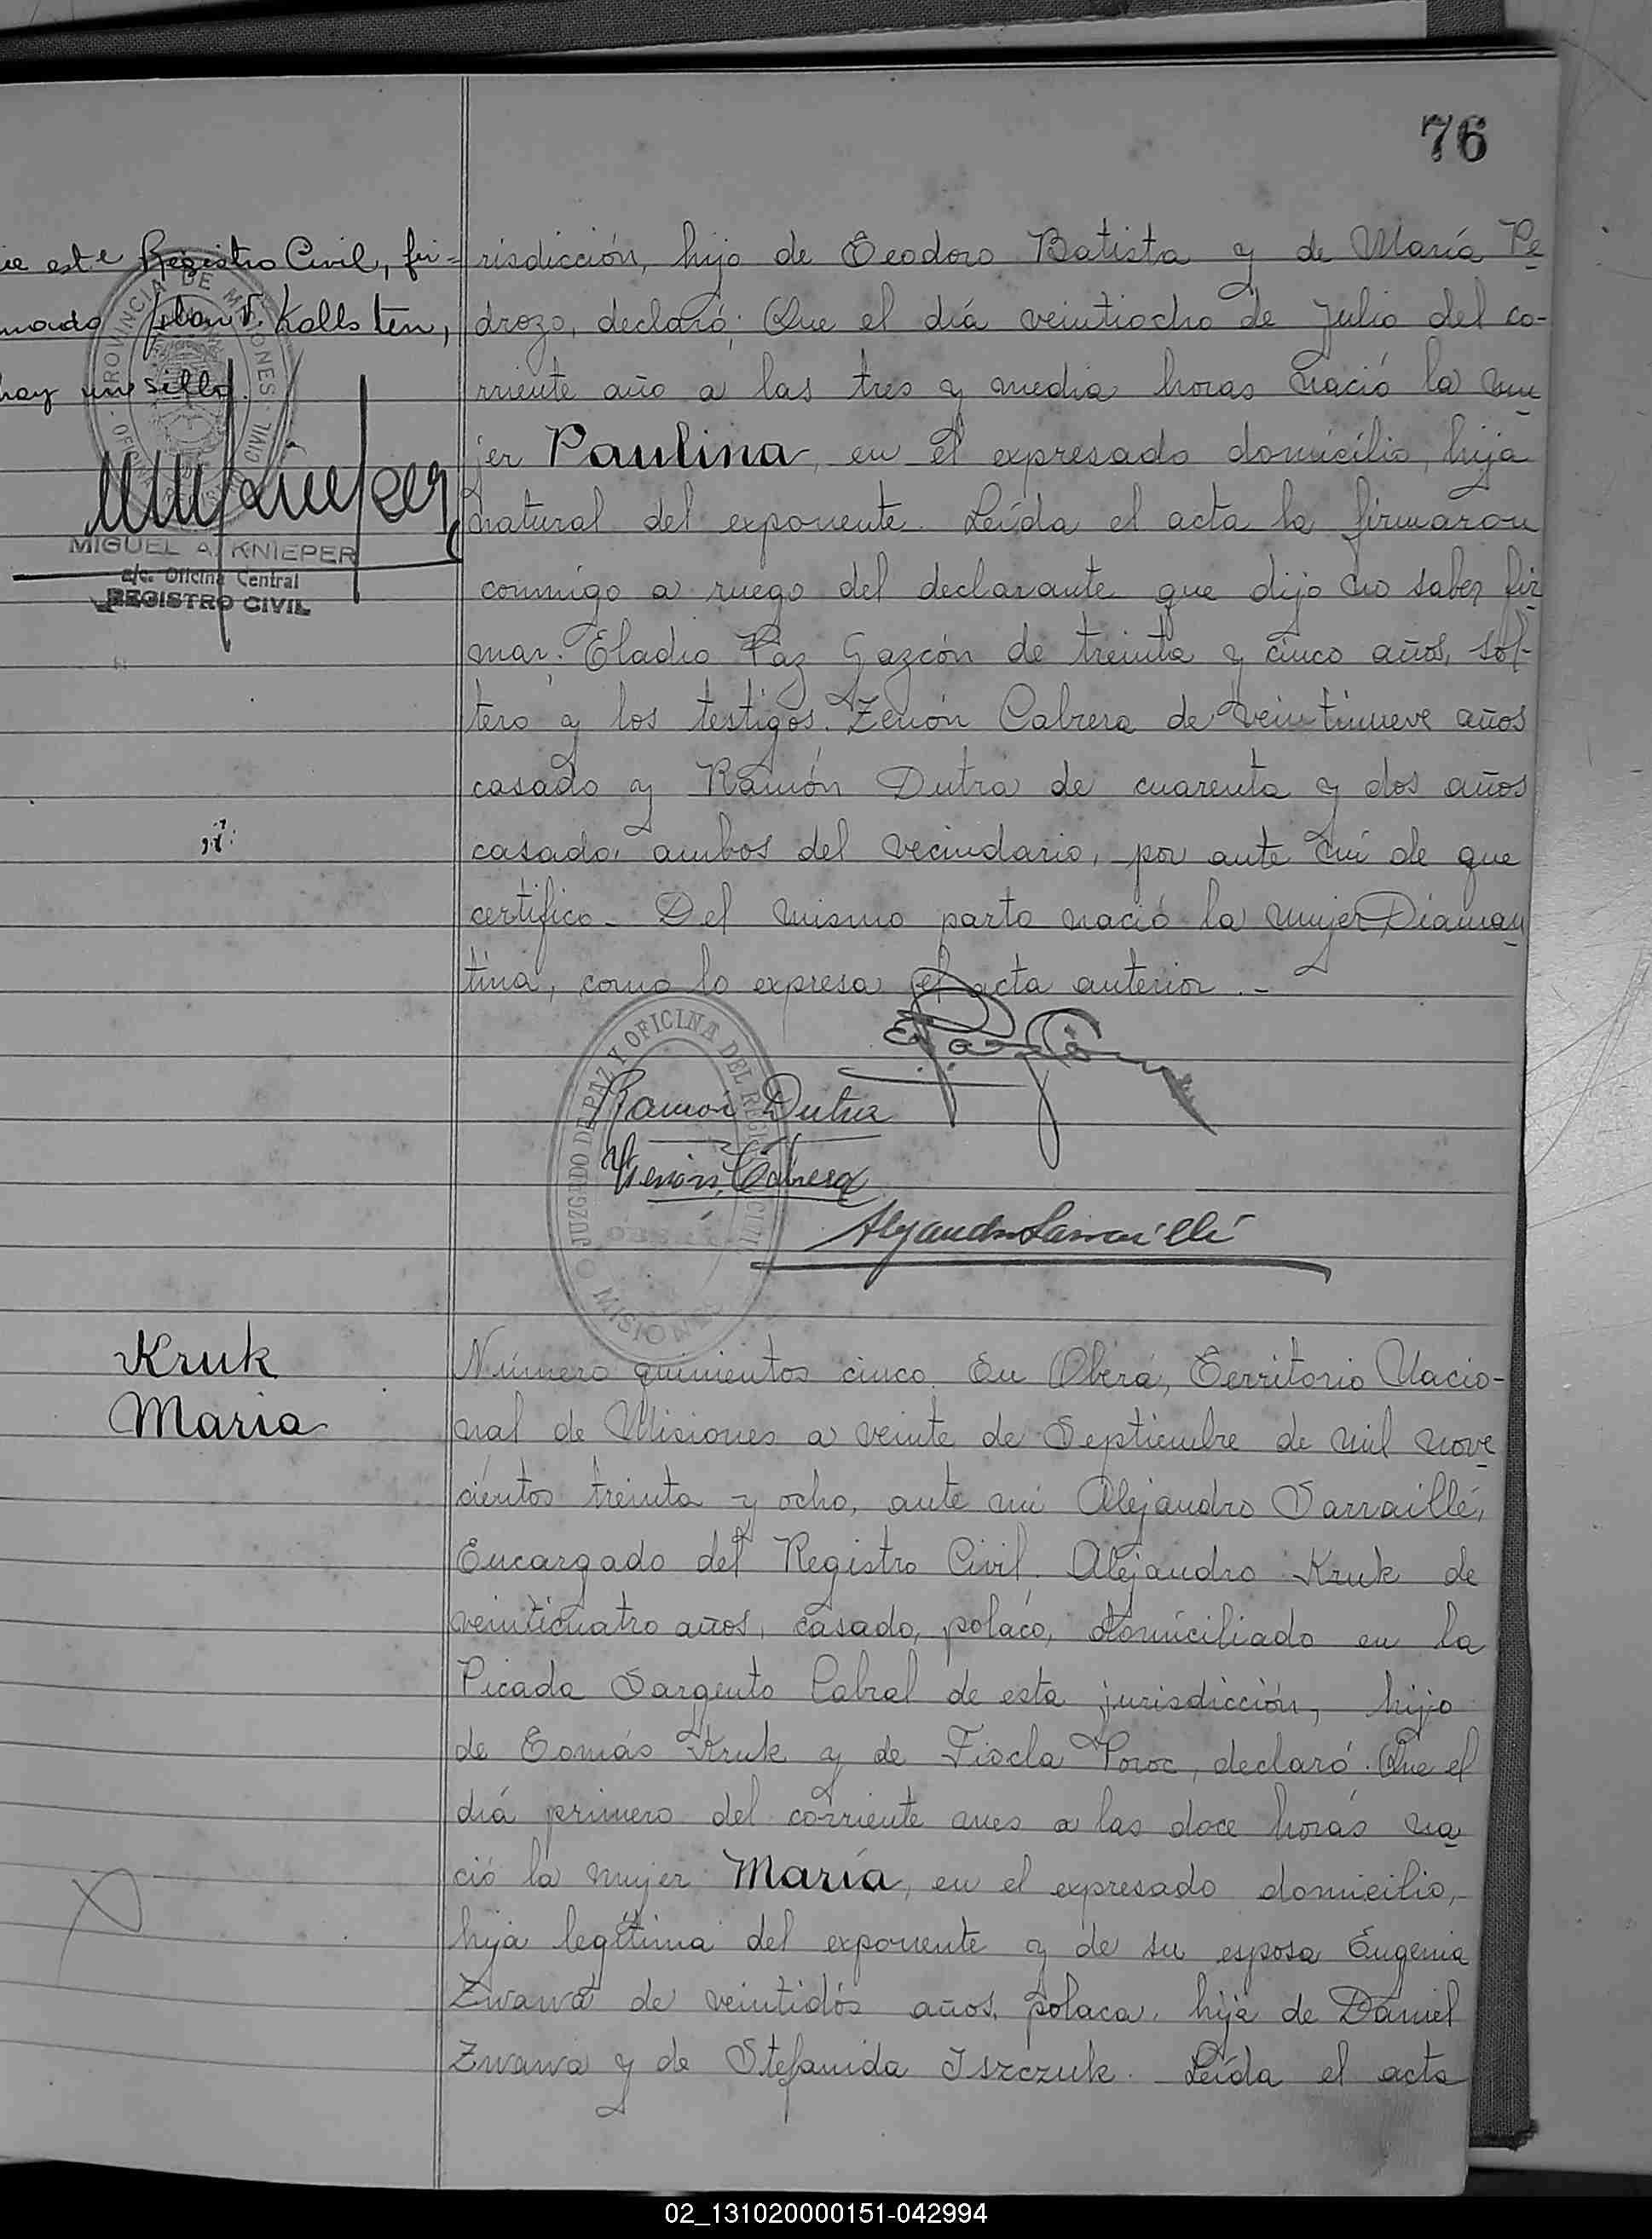 76
este Registro Civil, fir=
mado Juan V. Kollsten,
hay un sello.
PROVINCIA DE MISIONES
MIGUEL A. KNIEPER
a/c. Oficina Central
REGISTRO CIVIL
risdicción, hijo de Teodoro Batista y de María Pe
drozo, declaró: Que el día veintiocho de Julio del co-
rriente año a las tres y media horas nació la mu
jer Paulina, en el expresado domicilio, hija
natural del exponente. Leída el acta la firmaron
conmigo a ruego del declarante que dijo no saber fir
mar: Eladio Paz Gazcón de treinta y cinco años, sol-
tero y los testigos: Zenón Cabrera de veintinueve años
casado y Ramón Dutra de cuarenta y dos años
casado, ambos del vecindario, por ante mí de que
certifico. Del mismo parto nació la mujer Diaman
tina, como lo expresa el acta anterior.-
JUZGADO DE PAZ Y OFICINA DEL REGISTRO CIVIL
OBERÁ
MISIONES
Ramón Dutra
Zenón Cabrera
Alejandro Sarraillé
Kruk
Maria
Número quinientos cinco. En Oberá, Territorio Nacio-
nal de Misiones a veinte de Septiembre de mil nove
cientos treinta y ocho, ante mí Alejandro Sarraillé,
Encargado del Registro Civil. Alejandro Kruk de
veinticuatro años, casado, polaco, domiciliado en la
Picada Sargento Cabral de esta jurisdicción, hijo
de Tomás Kruk y de Fiocla Poroc, declaró: Que el
día primero del corriente mes a las doce horas na
ció la mujer María, en el expresado domicilio,
hija legítima del exponente y de su esposa Eugenia
Zwawa de veintidós años, polaca, hija de Daniel
Zwawa y de Stefanida Iszczuk. Leída el acta
02_131020000151-042994